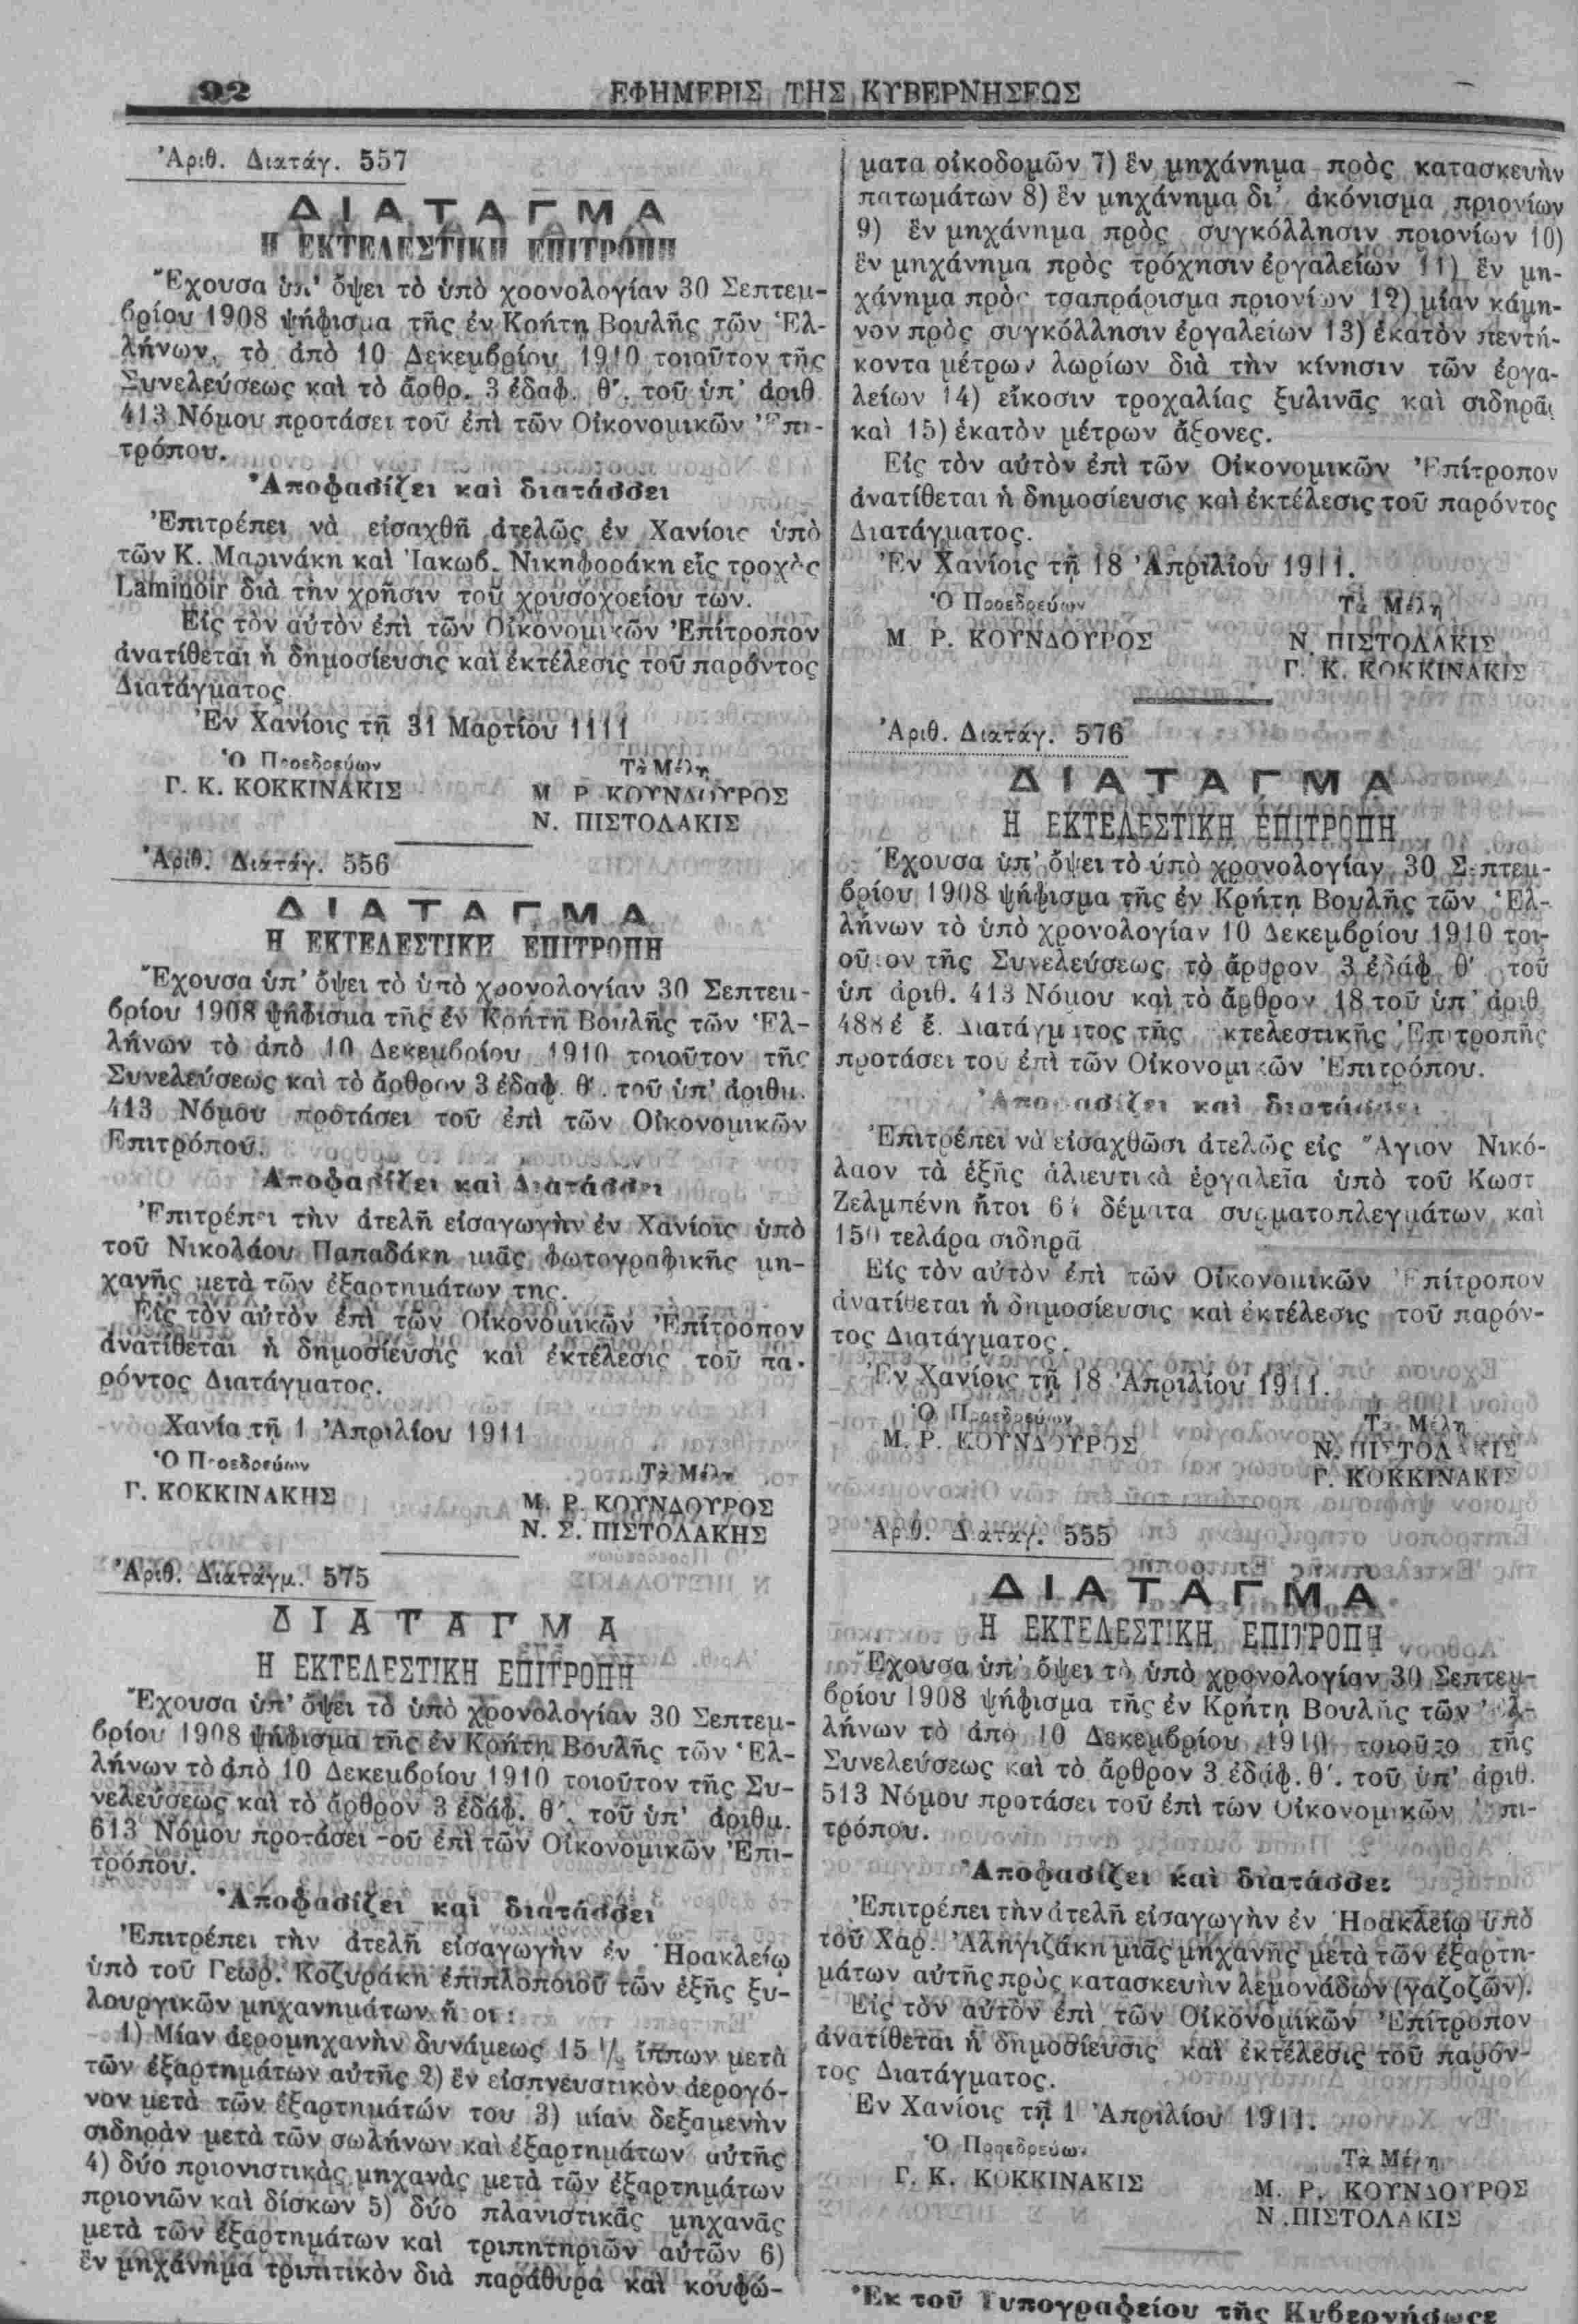 92
ΕΦΗΜΕΡΙΣ ΤΗΣ ΚΥΒΕΡΝΗΣΕΩΣ
Ἀριθ. Διατάγ. 557
ΔΙΑΤΑΓΜΑ
Η ΕΚΤΕΛΕΣΤΙΚΗ ΕΠΙΤΡΟΠΗ
Ἔχουσα ὑπ' ὄψει τὸ ὑπὸ χρονολογίαν 30 Σεπτεμ-
βρίου 1908 ψήφισμα τῆς ἐν Κρήτῃ Βουλῆς τῶν Ἑλ-
λήνων, τὸ ἀπὸ 10 Δεκεμβρίου 1910 τοιοῦτον τῆς
Συνελεύσεως καὶ τὸ ἄρθρ. 3 ἐδαφ. θ'. τοῦ ὑπ' ἀριθ
413 Νόμου προτάσει τοῦ ἐπὶ τῶν Οἰκονομικῶν Ἐπι-
τρόπου.
Ἀποφασίζει καὶ διατάσσει
Ἐπιτρέπει νὰ εἰσαχθῇ ἀτελῶς ἐν Χανίοις ὑπὸ
τῶν Κ. Μαρινάκη καὶ Ἰακωβ. Νικηφοράκη εἷς τροχὸς
Laminoir διὰ τὴν χρῆσιν τοῦ χρυσοχοείου των.
Εἰς τὸν αὐτὸν ἐπὶ τῶν Οἰκονομικῶν Ἐπίτροπον
ἀνατίθεται ἡ δημοσίευσις καὶ ἐκτέλεσις τοῦ παρόντος
Διατάγματος
Ἐν Χανίοις τῇ 31 Μαρτίου 1111
Ὁ Προεδρεύων
Γ. Κ. ΚΟΚΚΙΝΑΚΙΣ
Τὰ Μέλη
Μ Ρ ΚΟΥΝΔΟΥΡΟΣ
Ν. ΠΙΣΤΟΛΑΚΙΣ
Ἀριθ. Διατάγ. 556
ΔΙΑΤΑΓΜΑ
Η ΕΚΤΕΛΕΣΤΙΚΗ ΕΠΙΤΡΟΠΗ
Ἔχουσα ὑπ' ὄψει τὸ ὑπὸ χρονολογίαν 30 Σεπτεμ-
βρίου 1908 ψήφισμα τῆς ἐν Κρήτῃ Βουλῆς τῶν Ἑλ-
λήνων τὸ ἀπὸ 10 Δεκεμβρίου 1910 τοιοῦτον τῆς
Συνελεύσεως καὶ τὸ ἄρθρον 3 ἐδαφ. θ'. τοῦ ὑπ' ἀριθμ.
413 Νόμου προτάσει τοῦ ἐπὶ τῶν Οἰκονομικῶν
Ἐπιτρόπου.
Ἀποφασίζει καὶ Διατάσσει
Ἐπιτρέπει τὴν ἀτελῆ εἰσαγωγὴν ἐν Χανίοις ὑπὸ
τοῦ Νικολάου Παπαδάκη μιᾶς φωτογραφικῆς μη-
χανῆς μετὰ τῶν ἐξαρτημάτων της.
Εἰς τὸν αὐτὸν ἐπὶ τῶν Οἰκονομικῶν Ἐπίτροπον
ἀνατίθεται ἡ δημοσίευσις καὶ ἐκτέλεσις τοῦ πα-
ρόντος Διατάγματος.
Χανία τῇ 1 Ἀπριλίου 1911
Ὁ Προεδρεύων
Γ. ΚΟΚΚΙΝΑΚΗΣ
Τὰ Μέλη
Μ. Ρ. ΚΟΥΝΔΟΥΡΟΣ
Ν. Σ. ΠΙΣΤΟΛΑΚΗΣ
Ἀριθ. Διατάγμ. 575
ΔΙΑΤΑΓΜΑ
Η ΕΚΤΕΛΕΣΤΙΚΗ ΕΠΙΤΡΟΠΗ
Ἔχουσα ὑπ' ὄψει τὸ ὑπὸ χρονολογίαν 30 Σεπτεμ-
βρίου 1908 ψήφισμα τῆς ἐν Κρήτῃ Βουλῆς τῶν Ἑλ-
λήνων τὸ ἀπὸ 10 Δεκεμβρίου 1910 τοιοῦτον τῆς Συ-
νελεύσεως καὶ τὸ ἄρθρον 3 ἐδάφ. θ'. τοῦ ὑπ' ἀριθμ.
613 Νόμου προτάσει τοῦ ἐπὶ τῶν Οἰκονομικῶν Ἐπι-
τρόπου.
Ἀποφασίζει καὶ διατάσσει
Ἐπιτρέπει τὴν ἀτελῆ εἰσαγωγὴν ἐν Ἡρακλείῳ
ὑπὸ τοῦ Γεωρ. Κοζυράκη ἐπιπλοποιοῦ τῶν ἑξῆς ξυ-
λουργικῶν μηχανημάτων ἤ οι :
1) Μίαν ἀερομηχανὴν δυνάμεως 15 1/2 ἵππων μετὰ
τῶν ἐξαρτημάτων αὐτῆς 2) ἓν εἰσπνευστικὸν ἀερογό-
νον μετὰ τῶν ἐξαρτημάτών του 3) μίαν δεξαμενὴν
σιδηρὰν μετὰ τῶν σωλήνων καὶ ἐξαρτημάτων αὐτῆς
4) δύο πριονιστικὰς μηχανὰς μετὰ τῶν ἐξαρτημάτων
πριονιῶν καὶ δίσκων 5) δύο πλανιστικᾶς μηχανᾶς
μετὰ τῶν ἐξαρτημάτων καὶ τριπητηριῶν αὐτῶν 6)
ἓν μηχάνημα τριπιτικὸν διὰ παράθυρα καὶ κουφώ-
ματα οἰκοδομῶν 7) ἓν μηχάνημα πρὸς κατασκευὴν
πατωμάτων 8) ἓν μηχάνημα δι' ἀκόνισμα πριονίων
9) ἓν μηχάνημα πρὸς συγκόλλησιν πριονίων 10)
ἓν μηχάνημα πρὸς τρόχησιν ἐργαλείων 11) ἓν μη-
χάνημα πρὸς τσαπράρισμα πριονίων 12) μίαν κάμη-
νον πρὸς συγκόλλησιν ἐργαλείων 13) ἑκατὸν πεντή-
κοντα μέτρων λωρίων διὰ τὴν κίνησιν τῶν ἐργα-
λείων 14) εἴκοσιν τροχαλίας ξυλινᾶς καὶ σιδηρᾶς
καὶ 15) ἑκατὸν μέτρων ἄξονες.
Εἰς τὸν αὐτὸν ἐπὶ τῶν Οἰκονομικῶν Ἐπίτροπον
ἀνατίθεται ἡ δημοσίευσις καὶ ἐκτέλεσις τοῦ παρόντος
Διατάγματος.
Ἐν Χανίοις τῇ 18 Ἀπριλίου 1911.
Ὁ Προεδρεύων
Μ. Ρ. ΚΟΥΝΔΟΥΡΟΣ
Τὰ Μέλη
Ν. ΠΙΣΤΟΛΑΚΙΣ
Γ. Κ. ΚΟΚΚΙΝΑΚΙΣ
Ἀριθ. Διατάγ. 576
ΔΙΑΤΑΓΜΑ
Η ΕΚΤΕΛΕΣΤΙΚΗ ΕΠΙΤΡΟΠΗ
Ἔχουσα ὑπ' ὄψει τὸ ὑπὸ χρονολογίαν 30 Σεπτεμ-
βρίου 1908 ψήφισμα τῆς ἐν Κρήτῃ Βουλῆς τῶν Ἑλ-
λήνων τὸ ὑπὸ χρονολογίαν 10 Δεκεμβρίου 1910 τοι-
οῦτον τῆς Συνελεύσεως τὸ ἄρθρον 3 ἐδάφ θ' τοῦ
ὑπ ἀριθ. 413 Νόμου καὶ τὸ ἄρθρον 18 τοῦ ὑπ' ἀριθ
488 ἐ. ἔ. Διατάγματος τῆς κτελεστικῆς Ἐπιτροπῆς
προτάσει τοῦ ἐπὶ τῶν Οἰκονομικῶν Ἐπιτρόπου.
Ἀποφασίζει καὶ διατάσσει
Ἐπιτρέπει νὰ εἰσαχθῶσι ἀτελῶς εἰς Ἅγιον Νικό-
λαον τὰ ἑξῆς ἁλιευτικὰ ἐργαλεῖα ὑπὸ τοῦ Κωστ
Ζελμπένη ἤτοι δέματα συρματοπλεγμάτων καὶ
150 τελάρα σιδηρᾶ
Εἰς τὸν αὐτὸν ἐπὶ τῶν Οἰκονομικῶν Ἐπίτροπον
ἀνατίθεται ἡ δημοσίευσις καὶ ἐκτέλεσις τοῦ παρόν-
τος Διατάγματος.
Ἐν Χανίοις τῇ 18 Ἀπριλίου 1911.
Ὁ Προεδρεύων
Μ. Ρ. ΚΟΥΝΔΟΥΡΟΣ
Τὰ Μέλη
Ν. ΠΙΣΤΟΛΑΚΙΣ
Γ. ΚΟΚΚΙΝΑΚΙΣ
Ἀριθ. Διαταγ. 555
ΔΙΑΤΑΓΜΑ
Η ΕΚΤΕΛΕΣΤΙΚΗ ΕΠΙΤΡΟΠΗ
Ἔχουσα ὑπ' ὄψει τὸ ὑπὸ χρονολογίαν 30 Σεπτεμ-
βρίου 1908 ψήφισμα τῆς ἐν Κρήτῃ Βουλῆς τῶν Ἑλ-
λήνων τὸ ἀπὸ 10 Δεκεμβρίου 1910 τοιοῦτο τῆς
Συνελεύσεως καὶ τὸ ἄρθρον 3 ἐδάφ. θ'. τοῦ ὑπ' ἀριθ.
513 Νόμου προτάσει τοῦ ἐπὶ τῶν Οἰκονομικῶν Ἐπι-
τρόπου.
Ἀποφασίζει καὶ διατάσσει
Ἐπιτρέπει τὴν ἀτελῆ εἰσαγωγὴν ἐν Ἡρακλείῳ ὑπὸ
τοῦ Χαρ. Ἀληγιζάκη μιᾶς μηχανῆς μετὰ τῶν ἐξαρτη-
μάτων αὐτῆς πρὸς κατασκευὴν λεμονάδων (γαζοζῶν).
Εἰς τὸν αὐτὸν ἐπὶ τῶν Οἰκονομικῶν Ἐπίτροπον
ἀνατίθεται ἡ δημοσίευσις καὶ ἐκτέλεσις τοῦ παρόν-
τος Διατάγματος.
Ἐν Χανίοις τῇ 1 Ἀπριλίου 1911.
Ὁ Προεδρεύων
Γ. Κ. ΚΟΚΚΙΝΑΚΙΣ
Τὰ Μέλη
Μ. Ρ. ΚΟΥΝΔΟΥΡΟΣ
Ν. ΠΙΣΤΟΛΑΚΙΣ
Ἐκ τοῦ Τυπογραφείου τῆς Κυβερνήσεως